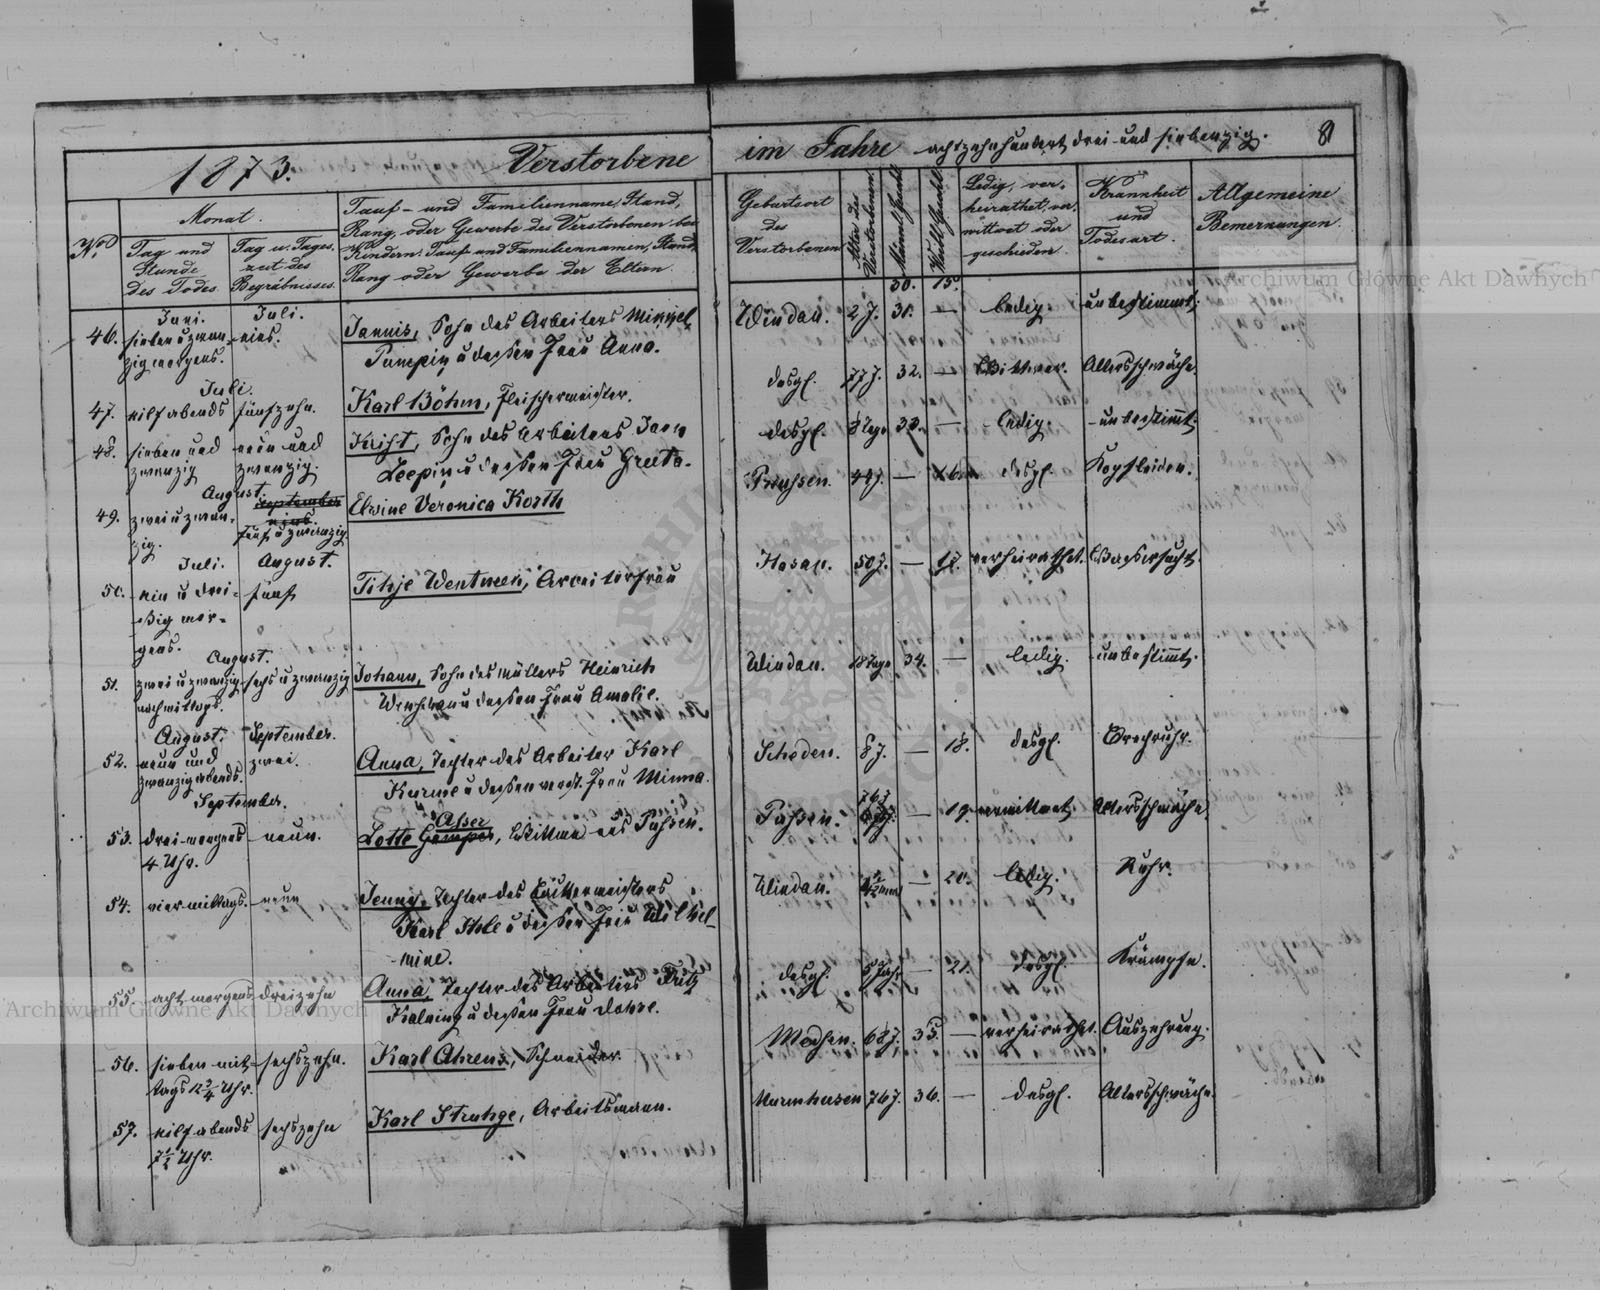 1873. Verstorbene
im Jahre achtzehnhundert drei und siebenzig. 81
No.
Monat.
Tag und Stunde des Todes.
Tag u. Tageszeit des Begräbnisses.
Tauf- und Familienname, Stand,
Rang, oder Gewerbe des Verstorbenen bei
Kindern: Tauf- und Familiennamen, Stand,
Rang oder Gewerbe der Eltern.
Geburtsort des Verstorbenen
Alter des Verstorbenen.
Männl. Geschl.
Weibl. Geschl.
Ledig, verheirathet, verwittwet oder geschieden.
Krannheit und Todesart.
Allgemeine Bemerkungen.
30. 15.
Juni. Juli.
46. sieben u zwan- eins. Jannis, Sohn des Arbeiters Mikkel Windau. 2 J. 31. — ledig. unbestimmt.
zig morgens. Pumpin u dessen Frau Anna.
Juli.
47. eilf abends fünfzehn. Karl Böhm, Fleischermeister. desgl. 77 J. 32. — Wittwer. Altersschwäche.
48. sieben und neun und Krist, Sohn des Arbeiters desgl. 8 Tage 33. — ledig. unbestimmt.
zwanzig zwanzig. Leepin u dessen Frau Greeta.
August. September
49. zwei u zwan- eins. Elvine Veronica Korth Preussen. — 16. desgl. Kopfleiden.
zig. fünf u zwanzig
Juli. August.
50. ein u drei- fünf Arbeiterfrau Hasau. 50 J. — 17. verheirathet. Wassersucht.
ßig mor-
gens.
August.
51. zwei u zwanzig sechs u zwanzig Johann, Sohn des Müllers Heinrich Windau. 18 Tage 34. — ledig. unbestimmt.
nachmittags. u dessen Frau Amalie.
August. September.
52. neun und zwei. Anna, Tochter des Arbeiter Karl Schoden. 8 J. — 18. desgl. Brechruhr.
zwanzig abends. Kurme u dessen verst. Frau Minna.
September.
Asser
53. drei morgens neun. Lotte Gamper, Wittwe aus Pussen. Pussen. 76 J. — 19. verwittwet Altersschwäche.
4 Uhr.
54. vier mittags. neun Jenny, Tochter des Karl Windau. — 20. ledig. Ruhr.
u dessen Frau Wilhel-
mine.
55. acht morgens dreizehn Anna, Tochter des Arbeiters Fritz desgl. 5 Jahr — 21. desgl. Krämpfe.
Kalning u dessen Frau Dohre.
56. sieben mit- sechszehn. Karl Ahrens, Schneider. 68 J. 35. — verheirathet. Auszehrung.
tags 12 3/4 Uhr.
57. eilf abends sechszehn Karl Struhge, Arbeitsmann. 76 J. 36. — desgl. Altersschwäche.
7 1/2 Uhr.
Archiwum Główne Akt Dawnych
Archiwum Główne Akt Dawnych